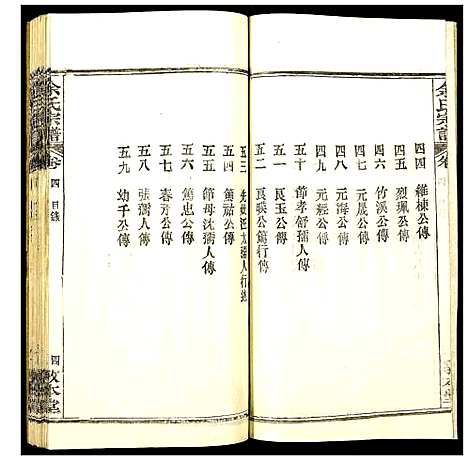 余氏宗譜
卷
四四 維棟公傳
四五 烈珮公傳
四六 竹溪公傳
四七 元晟公傳
四八 元海公傳
四九 元經公傳
五十 節孝舒孺人傳
五一 良玉公傳
五二 良瑛公篤行傳
五三 先妣汪太孺人行述
五四 篤祜公傳
五五 節母沈孺人傳
五六 篤忠公傳
五七 春亭公傳
五八 張孺人傳
五九 幼千公傳
余氏宗譜
卷
四 目錄
四
敘本堂